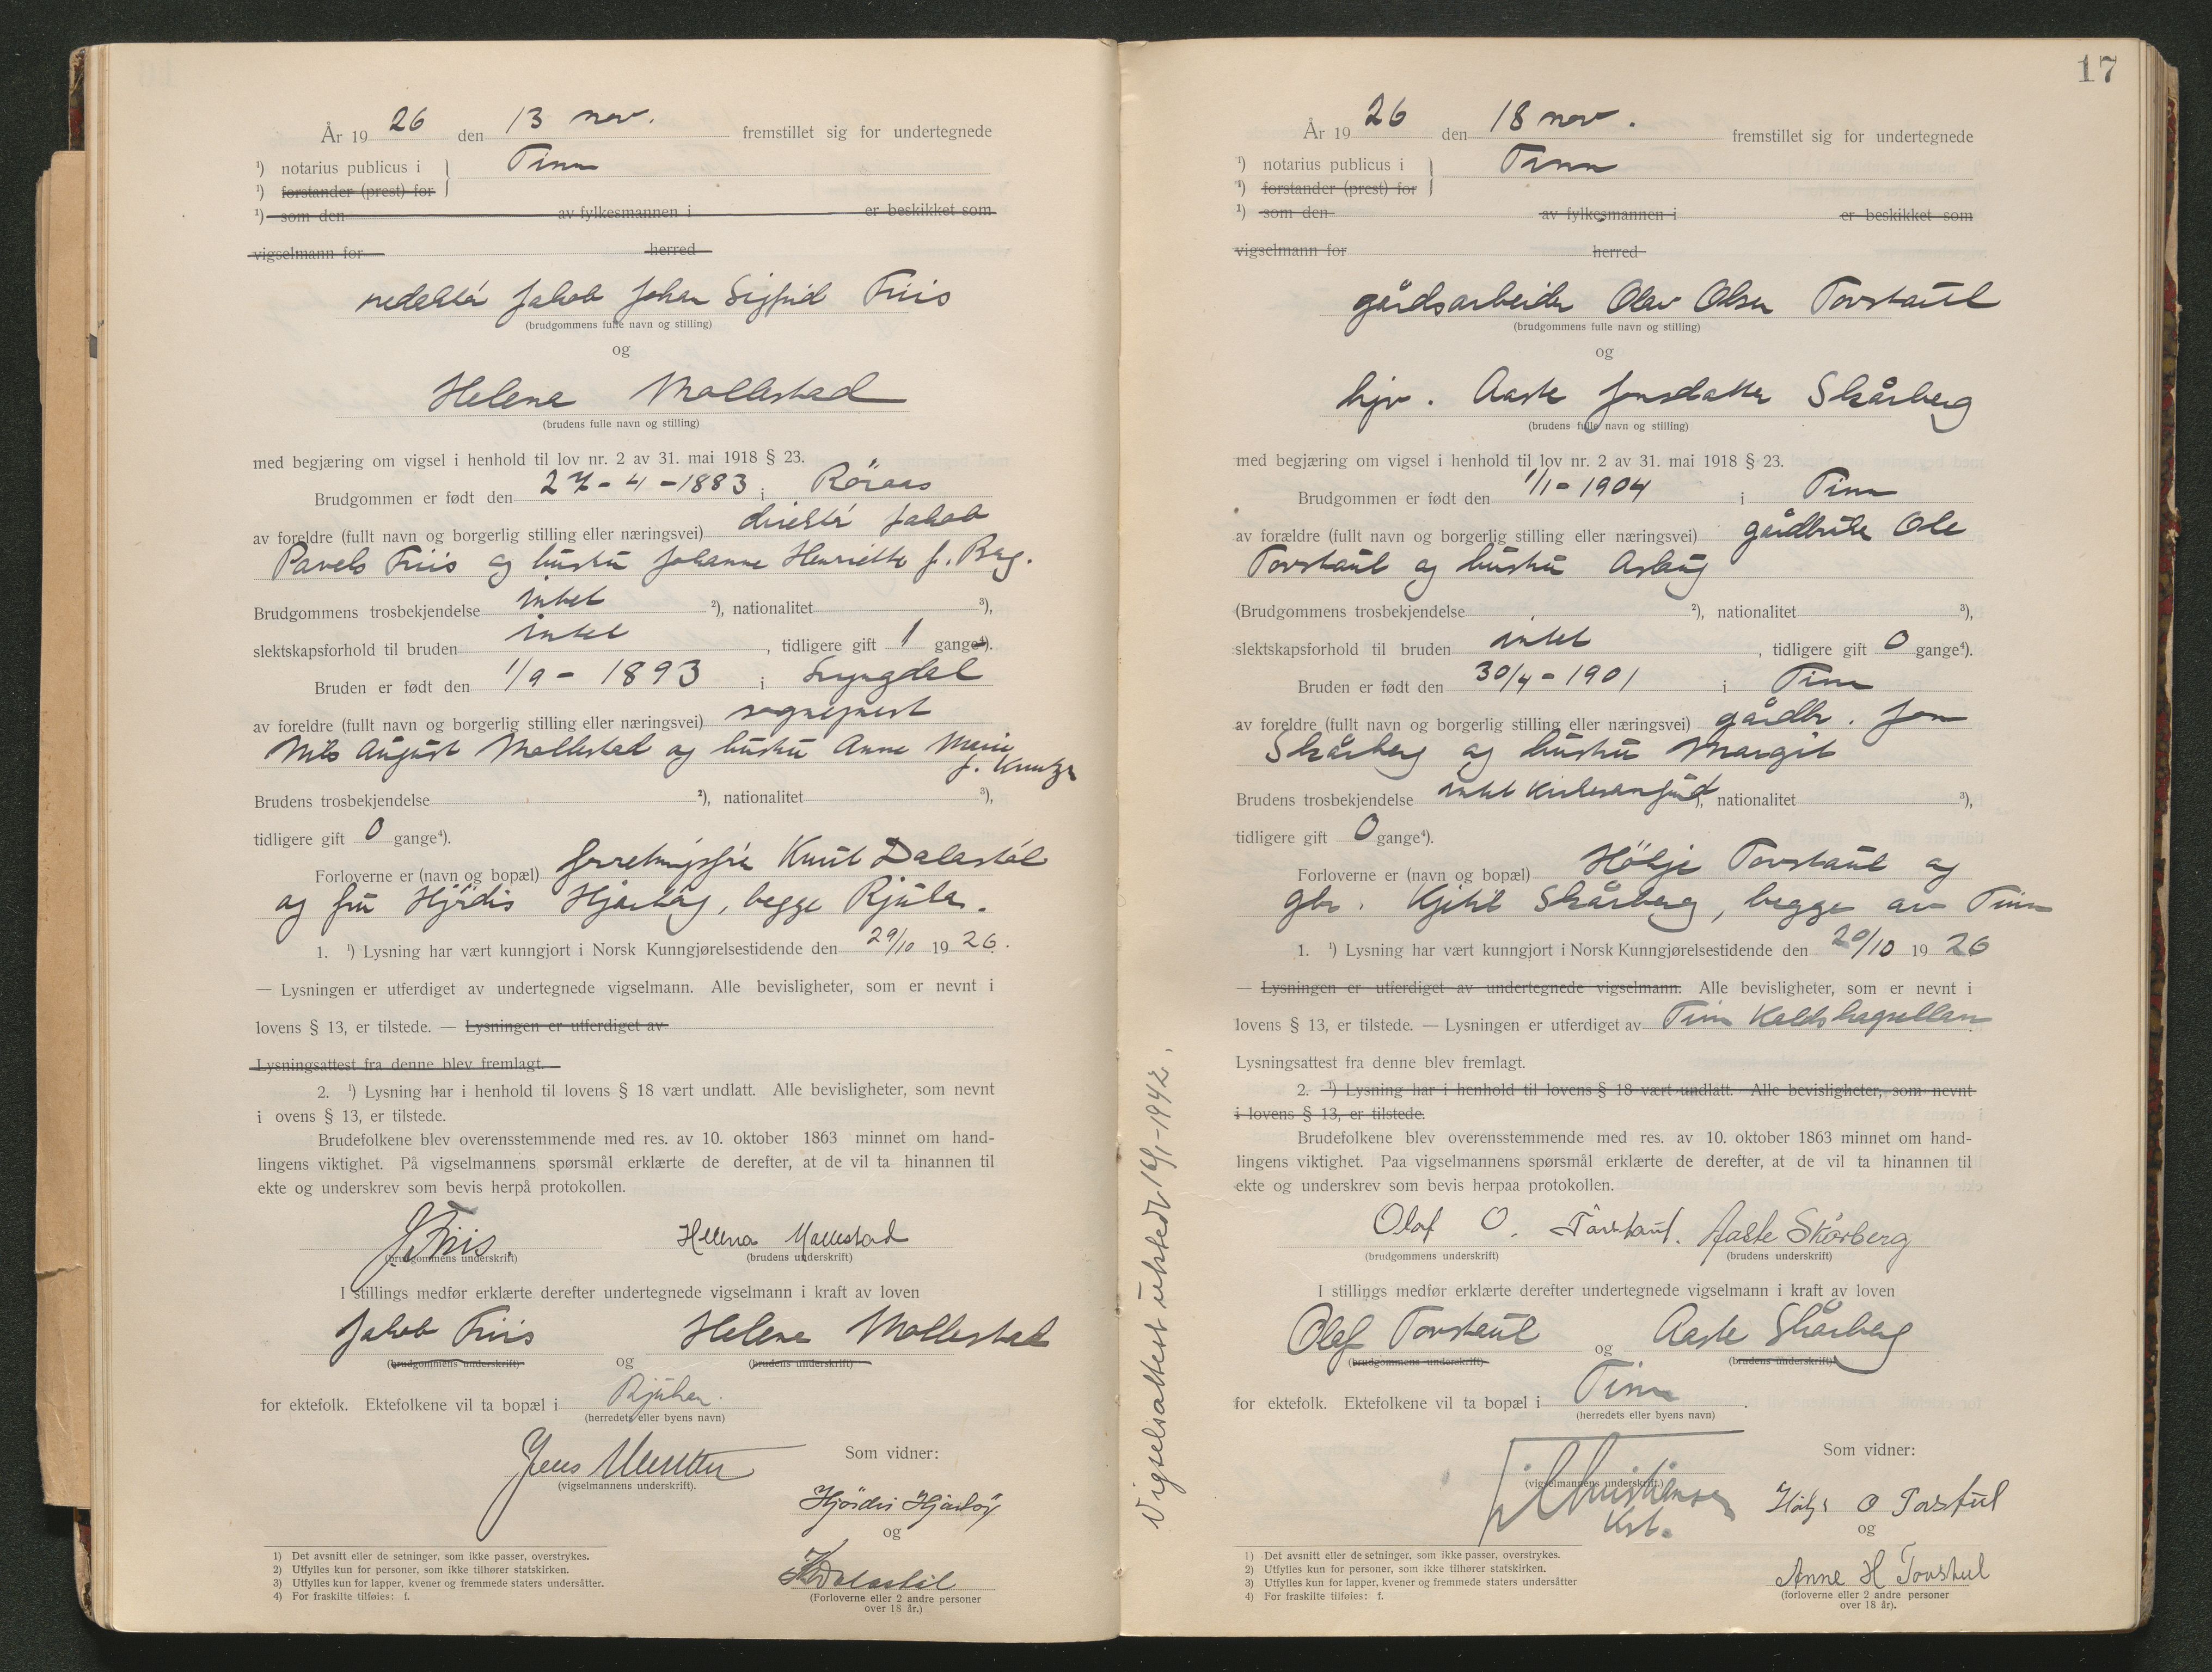 År 19 26 den 13 nov. fremstillet sig for undertegnede
¹) notarius publicus i } Tinn
¹) forstander (prest) for
¹) som den av fylkesmannen i er beskikket som
vigselmann for herred
redaktør Jakob Johan Sigfrid Friis
(brudgommens fulle navn og stilling)
og
Helena Mollestad
(brudens fulle navn og stilling)
med begjæring om vigsel i henhold til lov nr. 2 av 31. mai 1918 § 23.
Brudgommen er født den 27-4-1883 i Röraas
av foreldre (fullt navn og borgerlig stilling eller næringsvei) direktør Jakob
Pavels Friis og hustru Johanne Henriette f.
Brudgommens trosbekjendelse intet ²), nationalitet ³),
slektskapsforhold til bruden intet, tidligere gift 1 gange⁴).
Bruden er født den 1/9 - 1893 i Lyngdal
av foreldre (fullt navn og borgerlig stilling eller næringsvei) sogneprest
Nils August Mollestad og hustru Anne Marie
f.
Brudens trosbekjendelse ²), nationalitet ³),
tidligere gift 0 gange⁴).
Forloverne er (navn og bopæl) forretningsfør Knut Dalastøl
og fru Hjördis Hjartøy, begge Rjukan.
1. ¹) Lysning har vært kunngjort i Norsk Kunngjørelsestidende den 29/10 19 26.
— Lysningen er utferdiget av undertegnede vigselmann. Alle bevisligheter, som er nevnt i
lovens § 13, er tilstede. — Lysningen er utferdiget av
Lysningsattest fra denne blev fremlagt.
2. ¹) Lysning har i henhold til lovens § 18 vært undlatt. Alle bevisligheter, som nevnt
i ovens § 13, er tilstede.
Brudefolkene blev overensstemmende med res. av 10. oktober 1863 minnet om hand-
lingens viktighet. På vigselmannens spørsmål erklærte de derefter, at de vil ta hinannen til
ekte og underskrev som bevis herpå protokollen.
J. Friis. Helena Mollestad
(brudgommens underskrift) (brudens underskrift)
I stillings medfør erklærte derefter undertegnede vigselmann i kraft av loven
Jakob Friis og Helena Mollestad
(brudgommens underskrift) (brudens underskrift)
for ektefolk. Ektefolkene vil ta bopæl i Rjukan.
(herredets eller byens navn)
Jens
(vigselmannens underskrift).
Som vidner:
Hjördis Hjartøy
og
K Dalastøl
(Forloverne eller 2 andre personer
over 18 år.)
1) Det avsnitt eller de setninger, som ikke passer, overstrykes.
2) Utfylles kun for personer, som ikke tilhører statskirken.
3) Utfylles kun for lapper, kvener og fremmede staters undersåtter.
4) For fraskilte tilføies: f.
17
År 19 26 den 18 nov. fremstillet sig for undertegnede
¹) notarius publicus i } Tinn
¹) forstander (prest) for
¹) som den av fylkesmannen i er beskikket som
vigselmann for herred
gårdsarbeider Olav Olsen Torstaul
(brudgommens fulle navn og stilling)
og
hjv. Aaste Jonsdatter Skårberg
(brudens fulle navn og stilling)
med begjæring om vigsel i henhold til lov nr. 2 av 31. mai 1918 § 23.
Brudgommen er født den 1/1 - 1904 i Tinn
av forældre (fullt navn og borgerlig stilling eller næringsvei) gårdbruker Ole
Torstaul og hustru Aslaug
(Brudgommens trosbekjendelse ²), nationalitet ³),
slektskapsforhold til bruden intet, tidligere gift 0 gange⁴).
Bruden er født den 30/4 - 1901 i Tinn
av foreldre (fullt navn og borgerlig stilling eller næringsvei) gårdbr. Jon
Skårberg og hustru Margit
Brudens trosbekjendelse intet kirkesamfund, nationalitet ³),
tidligere gift 0 gange⁴).
Forloverne er (navn og bopæl) Hölje Torstaul og
gbr. Kjetil Skårberg, begge av Tinn
1. ¹) Lysning har vært kunngjort i Norsk Kunngjørelsestidende den 20/10 19 26
— Lysningen er utferdiget av undertegnede vigselmann. Alle bevisligheter, som er nevnt i
lovens § 13, er tilstede. — Lysningen er utferdiget av Tinn
Lysningsattest fra denne blev fremlagt.
2. ¹) Lysning har i henhold til lovens § 18 vært undlatt. Alle bevisligheter, som nevnt
i lovens § 13, er tilstede.
Brudefolkene blev overensstemmende med res. av 10. oktober 1863 minnet om hand-
lingens viktighet. Paa vigselmannens spørsmål erklærte de derefter, at de vil ta hinannen til
ekte og underskrev som bevis herpaa protokollen.
Olaf O. Torstaul. Aaste Skårberg
(brudgommens underskrift) (brudens underskrift)
I stillings medfør erklærte derefter undertegnede vigselmann i kraft av loven
Olaf Torstaul og Aaste Skårberg
(brudgommens underskrift) (brudens underskrift)
for ektefolk. Ektefolkene vil ta bopæl i Tinn.
(herredets eller byens navn)
Christiansen
(vigselmannens underskrift.)
Kst.
Som vidner:
Hölje O Torstul
og
Anne H Torstul
(forloverne eller 2 andre personer
over 18 år).
1) Det avsnitt eller de setninger, som ikke passer, overstrykes.
2) Utfylles kun for personer, som ikke tilhører statskirken.
3) Utfylles kun for lapper, kvener og fremmede staters undersåtter
4) For fraskilte tilføies: f.
Vigselsattest utstedt 16/1-1942.